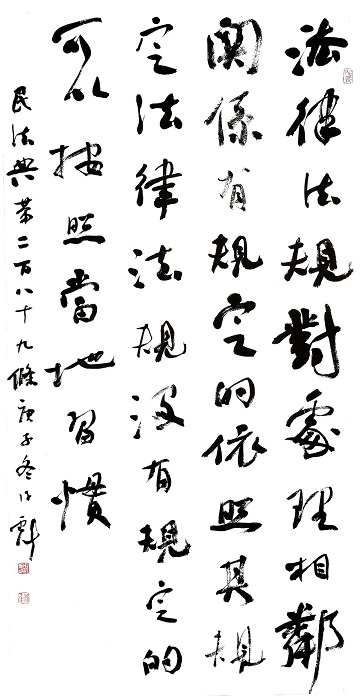 法律法規對處理相鄰
關係有規定的依照其規
定法律法規沒有規定的
可以按照當地習慣
民法典第二百八十九條庚子冬